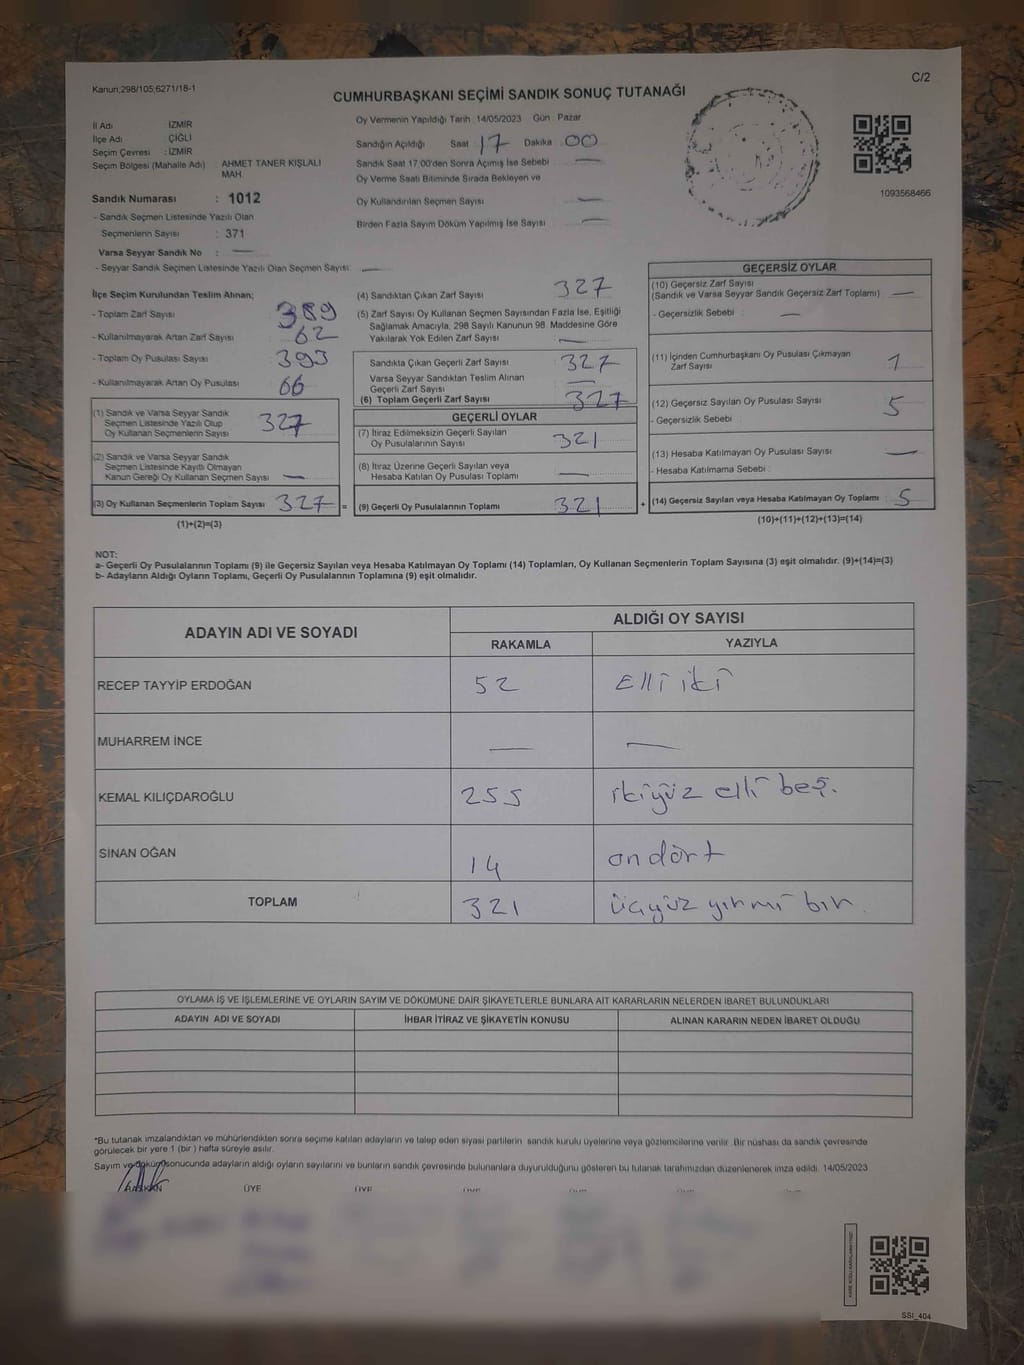 C/2
Kanun;298/105;6271/18-1
CUMHURBAŞKANI SEÇİMİ SANDIK SONUÇ TUTANAĞI
İl Adı : İZMİR
İlçe Adı : ÇİĞLİ
Seçim Çevresi : İZMİR
Seçim Bölgesi (Mahalle Adı) : AHMET TANER KIŞLALI MAH.
Sandık Numarası : 1012
- Sandık Seçmen Listesinde Yazılı Olan
Seçmenlerin Sayısı : 371
Varsa Seyyar Sandık No : —
- Seyyar Sandık Seçmen Listesinde Yazılı Olan Seçmen Sayısı: —
Oy Vermenin Yapıldığı Tarih :14/05/2023 Gün : Pazar
Sandığın Açıldığı Saat : 17 Dakika : 00
Sandık Saat 17.00'den Sonra Açılmış İse Sebebi : —
Oy Verme Saati Bitiminde Sırada Bekleyen ve
Oy Kullandırılan Seçmen Sayısı : —
Birden Fazla Sayım Döküm Yapılmış İse Sayısı : —
1093568466
İlçe Seçim Kurulundan Teslim Alınan;
- Toplam Zarf Sayısı : 389
- Kullanılmayarak Artan Zarf Sayısı : 62
- Toplam Oy Pusulası Sayısı : 393
- Kullanılmayarak Artan Oy Pusulası : 66
(1) Sandık ve Varsa Seyyar Sandık
Seçmen Listesinde Yazılı Olup
Oy Kullanan Seçmenlerin Sayısı : 327
(2) Sandık ve Varsa Seyyar Sandık
Seçmen Listesinde Kayıtlı Olmayan
Kanun Gereği Oy Kullanan Seçmen Sayısı : —
(3) Oy Kullanan Seçmenlerin Toplam Sayısı : 327 =
(1)+(2)=(3)
(4) Sandıktan Çıkan Zarf Sayısı : 327
(5) Zarf Sayısı Oy Kullanan Seçmen Sayısından Fazla İse, Eşitliği
Sağlamak Amacıyla, 298 Sayılı Kanunun 98. Maddesine Göre
Yakılarak Yok Edilen Zarf Sayısı : —
Sandıkta Çıkan Geçerli Zarf Sayısı : 327
Varsa Seyyar Sandıktan Teslim Alınan
Geçerli Zarf Sayısı : —
(6) Toplam Geçerli Zarf Sayısı : 327
GEÇERLİ OYLAR
(7) İtiraz Edilmeksizin Geçerli Sayılan
Oy Pusulalarının Sayısı : 321
(8) İtiraz Üzerine Geçerli Sayılan veya
Hesaba Katılan Oy Pusulası Toplamı : —
(9) Geçerli Oy Pusulalarının Toplamı : 321 +
GEÇERSİZ OYLAR
(10) Geçersiz Zarf Sayısı
(Sandık ve Varsa Seyyar Sandık Geçersiz Zarf Toplamı) : —
- Geçersizlik Sebebi : —
(11) İçinden Cumhurbaşkanı Oy Pusulası Çıkmayan
Zarf Sayısı : 1
(12) Geçersiz Sayılan Oy Pusulası Sayısı : 5
- Geçersizlik Sebebi :
(13) Hesaba Katılmayan Oy Pusulası Sayısı : —
- Hesaba Katılmama Sebebi :
(14) Geçersiz Sayılan veya Hesaba Katılmayan Oy Toplamı : 5
(10)+(11)+(12)+(13)=(14)
NOT:
a- Geçerli Oy Pusulalarının Toplamı (9) ile Geçersiz Sayılan veya Hesaba Katılmayan Oy Toplamı (14) Toplamları, Oy Kullanan Seçmenlerin Toplam Sayısına (3) eşit olmalıdır. (9)+(14)=(3)
b- Adayların Aldığı Oyların Toplamı, Geçerli Oy Pusulalarının Toplamına (9) eşit olmalıdır.
ADAYIN ADI VE SOYADI ALDIĞI OY SAYISI
RAKAMLA YAZIYLA
RECEP TAYYİP ERDOĞAN 52 Elli iki
MUHARREM İNCE — —
KEMAL KILIÇDAROĞLU 255 ikiyüz elli beş.
SİNAN OĞAN 14 on dört
TOPLAM 321 üçyüz yirmi bir
OYLAMA İŞ VE İŞLEMLERİNE VE OYLARIN SAYIM VE DÖKÜMÜNE DAİR ŞİKAYETLERLE BUNLARA AİT KARARLARIN NELERDEN İBARET BULUNDUKLARI
ADAYIN ADI VE SOYADI İHBAR İTİRAZ VE ŞİKAYETİN KONUSU ALINAN KARARIN NEDEN İBARET OLDUĞU
*Bu tutanak imzalandıktan ve mühürlendikten sonra seçime katılan adayların ve talep eden siyasi partilerin sandık kurulu üyelerine veya gözlemcilerine verilir. Bir nüshası da sandık çevresinde
görülecek bir yere 1 (bir) hafta süreyle asılır.
Sayım ve döküm sonucunda adayların aldığı oyların sayılarını ve bunların sandık çevresinde bulunanlara duyurulduğunu gösteren bu tutanak tarafımızdan düzenlenerek imza edildi. 14/05/2023
BAŞKAN ÜYE ÜYE
SSI_404